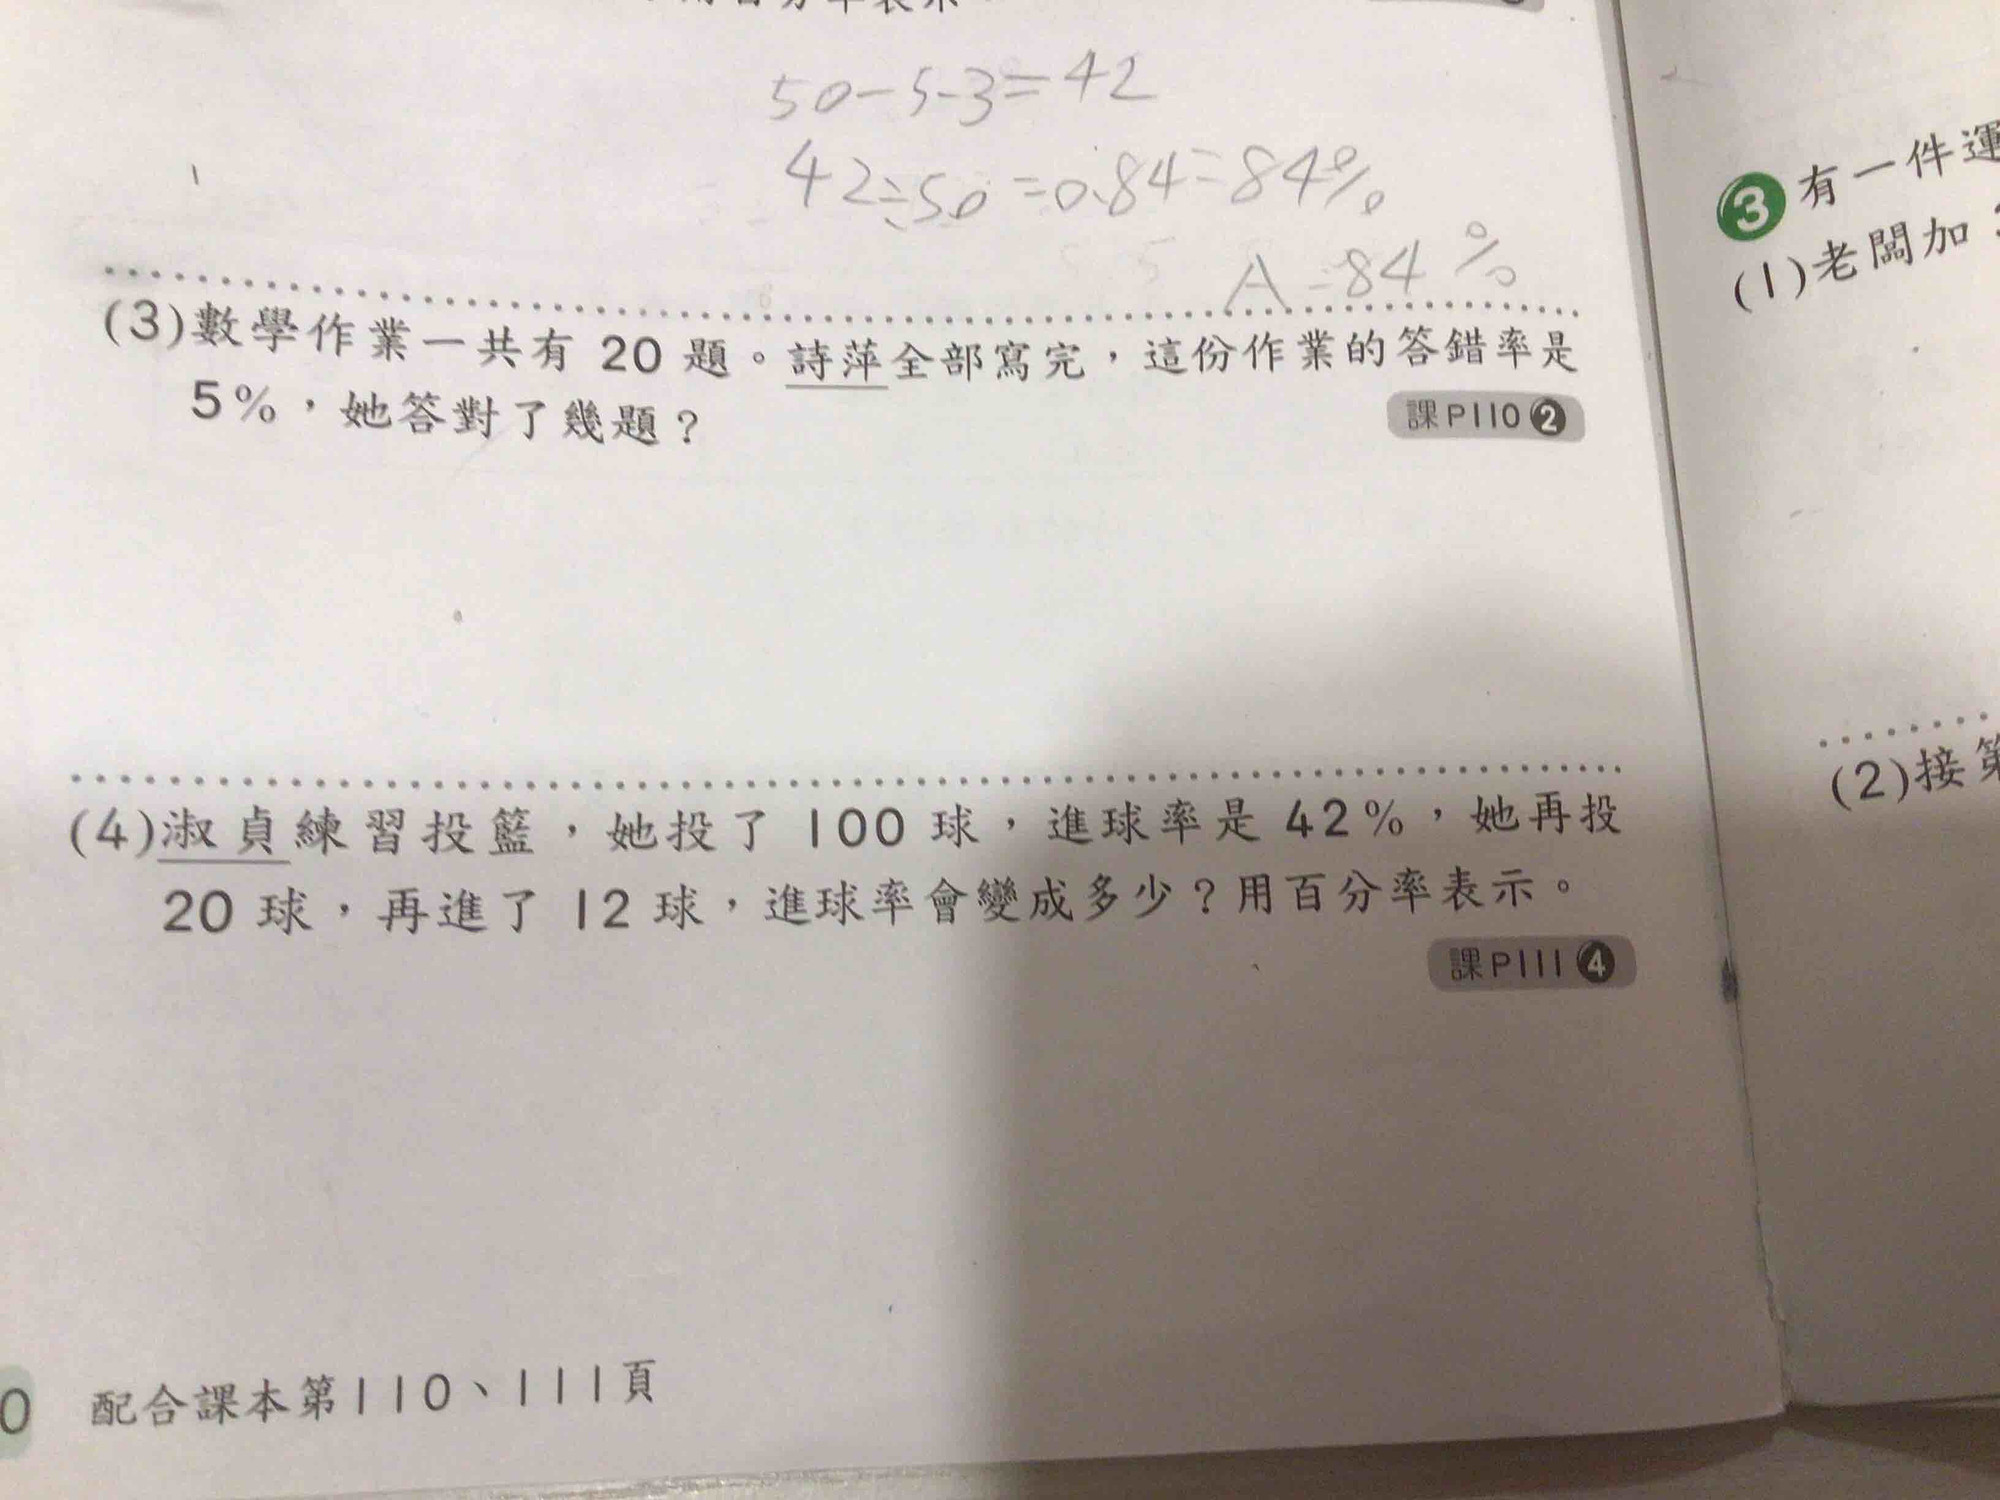 50-5-3=42
42÷50=0.84=84%
A=84%
(3)數學作業一共有 20 題。詩萍全部寫完，這份作業的答錯率是
5%，她答對了幾題？
課P110❷
(4)淑貞練習投籃，她投了 100 球，進球率是 42%，她再投
20 球，再進了 12 球，進球率會變成多少？用百分率表示。
課P111❹
0 配合課本第110、111頁
3 有一件運
(1)老闆加
(2)接第